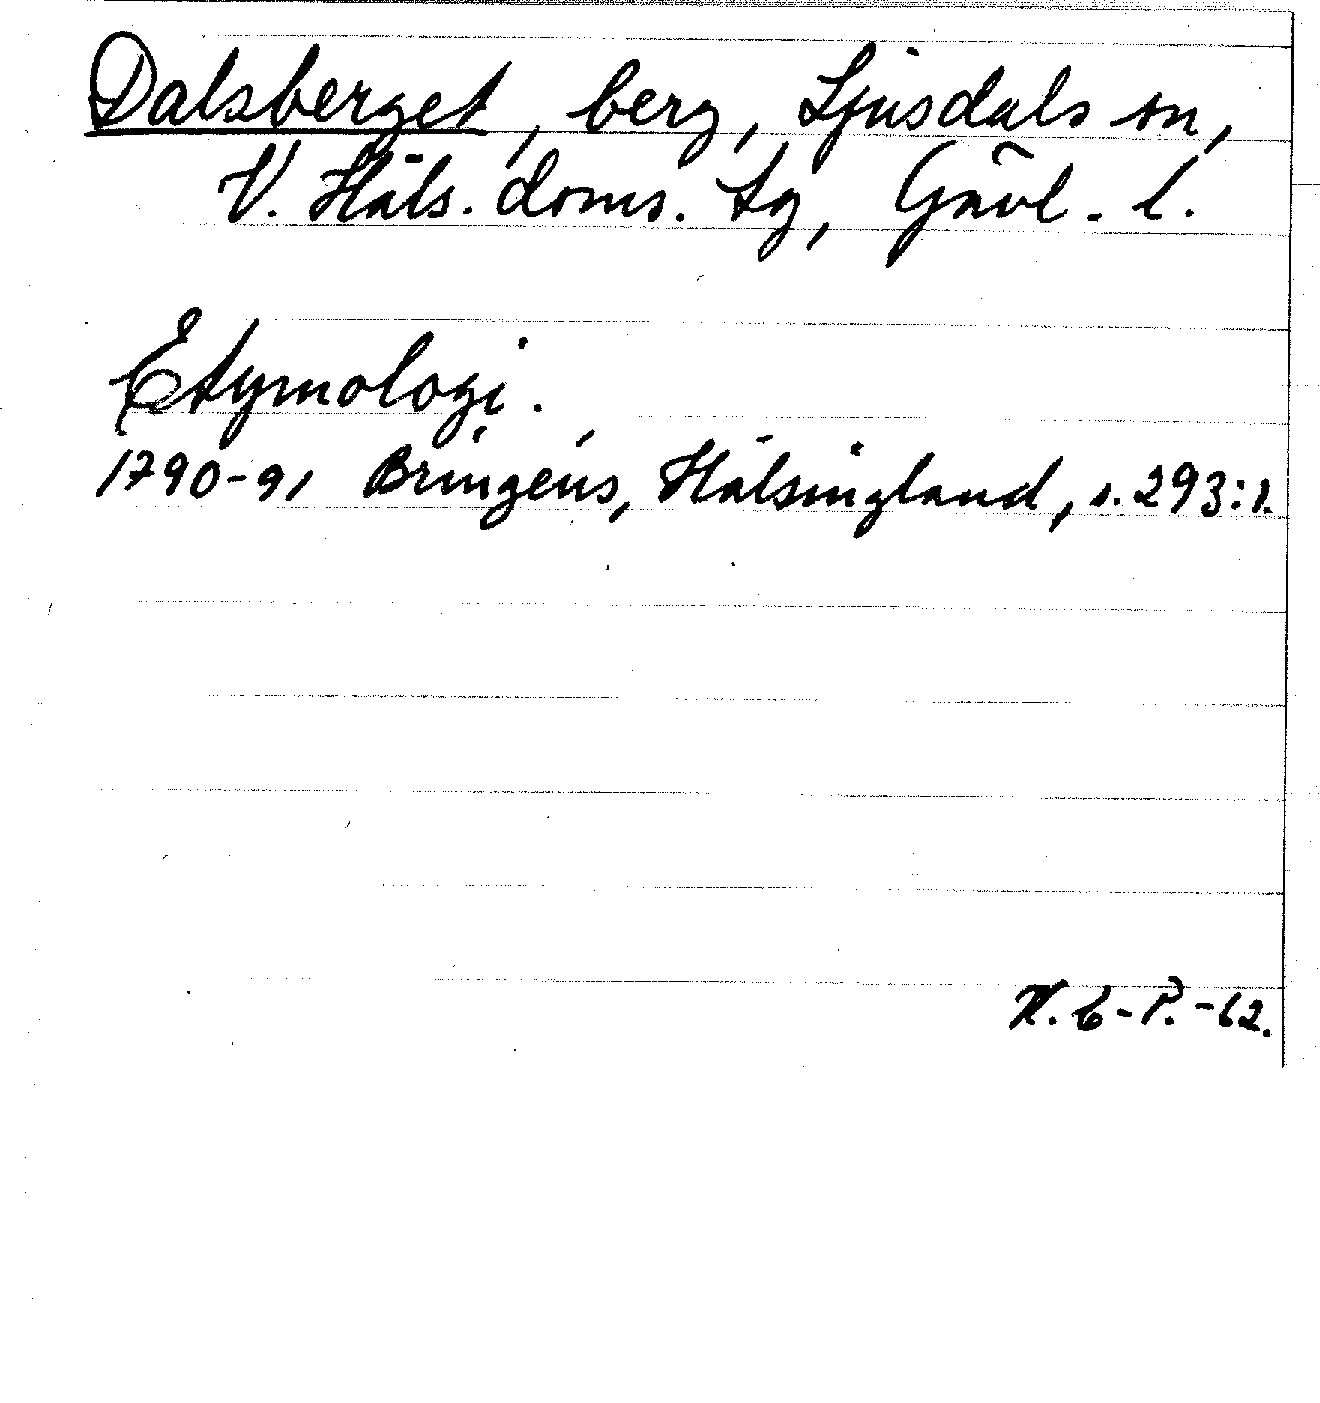 Dalsberget, berg, Ljusdals sn,
V. Häls. doms. tg, Gävl. l.
Etymologi.
1790-91 Bringéus, Hälsingland, s. 293:1.
N. C-P. -62.